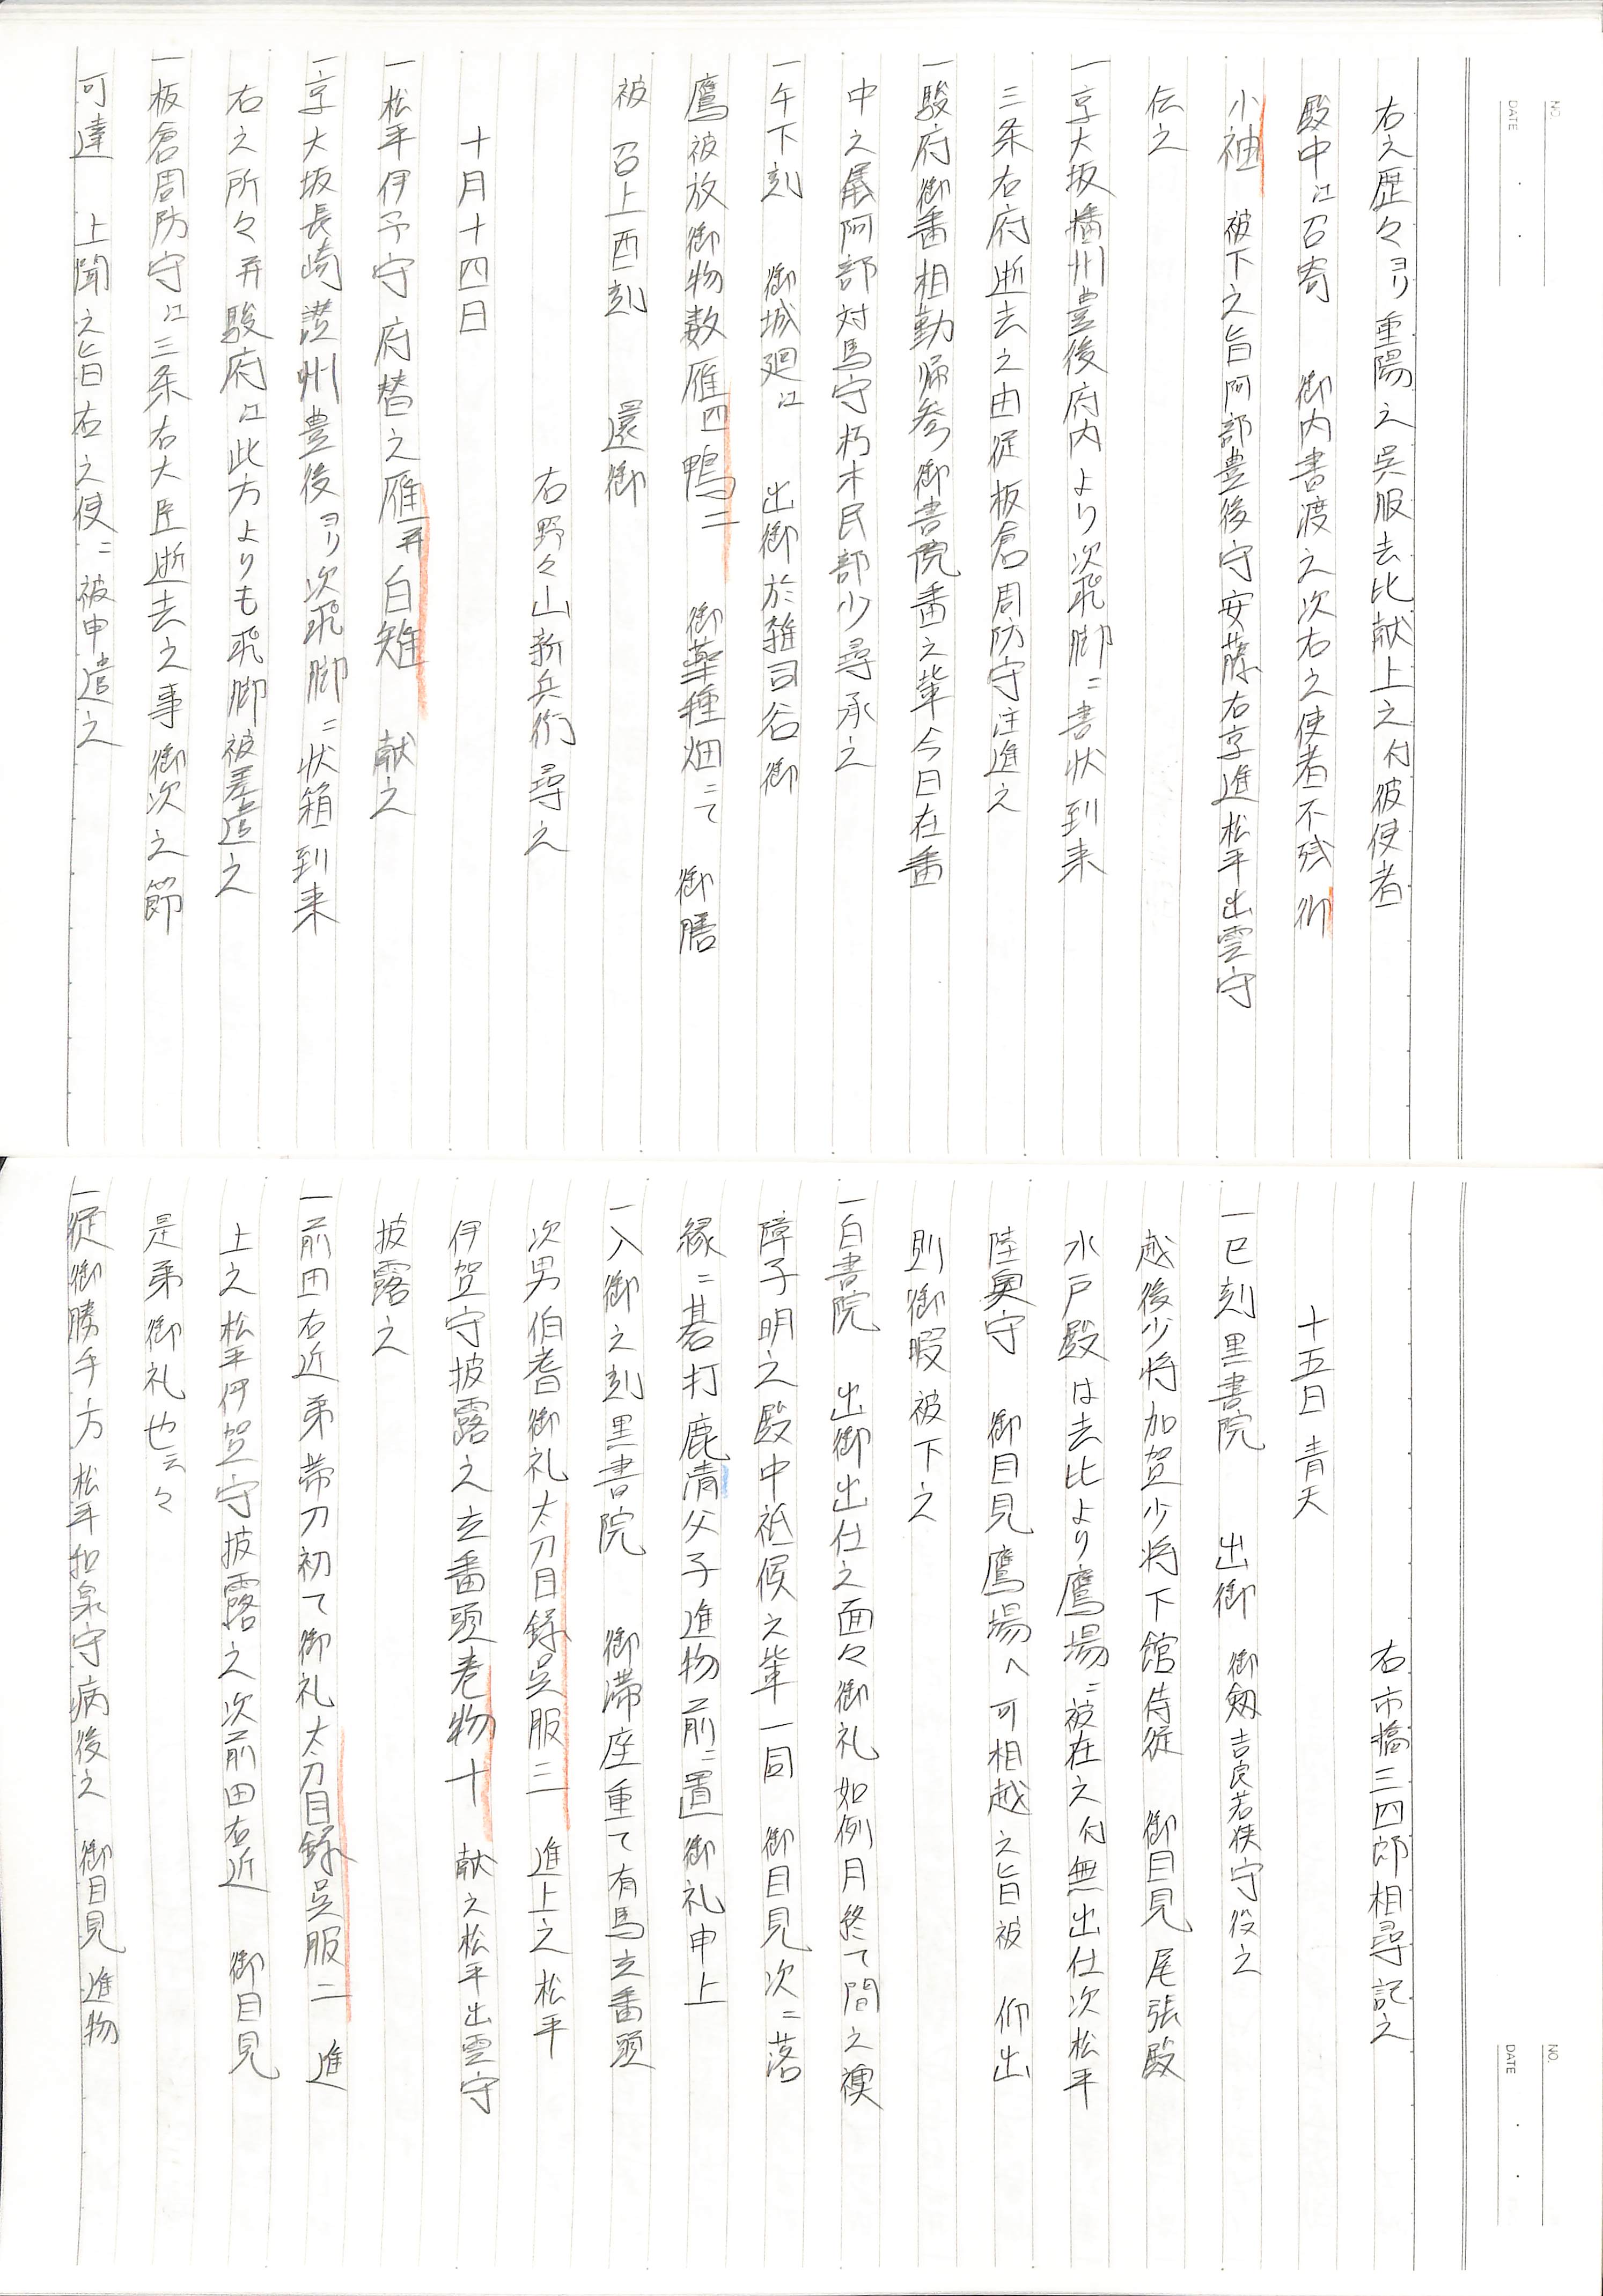 NO.
DATE
右之歴々ヨリ重陽之呉服去比献上之付彼使者
殿中江召寄 御内書渡之次右之使者不残 御
小袖 被下之旨阿部豊後守安藤右京進松平出雲守
伝之
一京大坂播州豊後府内より次飛脚ニ書状到来
三条右府逝去之由従板倉周防守注進之
一駿府御番相勤帰参御書院番之輩今日在番
中之儀阿部対馬守朽木民部少尋承之
一午下刻 御城廻江 出御於雑司谷御
鷹被放御物数雁四鴨二 御薬種畑ニて 御膳
被 召上酉刻 還御
右野々山新兵衛尋之
十月十四日
一松平伊予守府替之雁并白雉 献之
一京大坂長崎濃州豊後ヨリ次飛脚ニ状箱到来
右之所々并駿府江此方よりも飛脚被差遣之
一板倉周防守江三条右大臣逝去之事御次之節
可達 上聞之旨右之使ニ被申遣之
NO.
DATE
右市橋三四郎相尋記之
十五日 青天
一巳刻黒書院 出御 御劔吉良若狭守役之
越後少将加賀少将下館侍従 御目見尾張殿
水戸殿は去比より鷹場ニ被在之付無出仕次松平
陸奥守 御目見鷹場へ可相越之旨被 仰出
則御暇被下之
一白書院 出御出仕之面々御礼如例月終て間之襖
障子明之殿中祗候之輩一同 御目見次ニ落
縁ニ碁打鹿清父子進物前ニ置御礼申上
一入御之刻黒書院 御滞座重て有馬玄番頭
次男伯耆御礼太刀目録呉服三 進上之松平
伊賀守披露之玄番頭巻物十 献之松平出雲守
披露之
一前田右近弟帯刀初て御礼太刀目録呉服二 進
上之松平伊賀守披露之次前田右近 御目見
是弟御礼也云々
一従御勝手方松平和泉守病後之 御目見進物